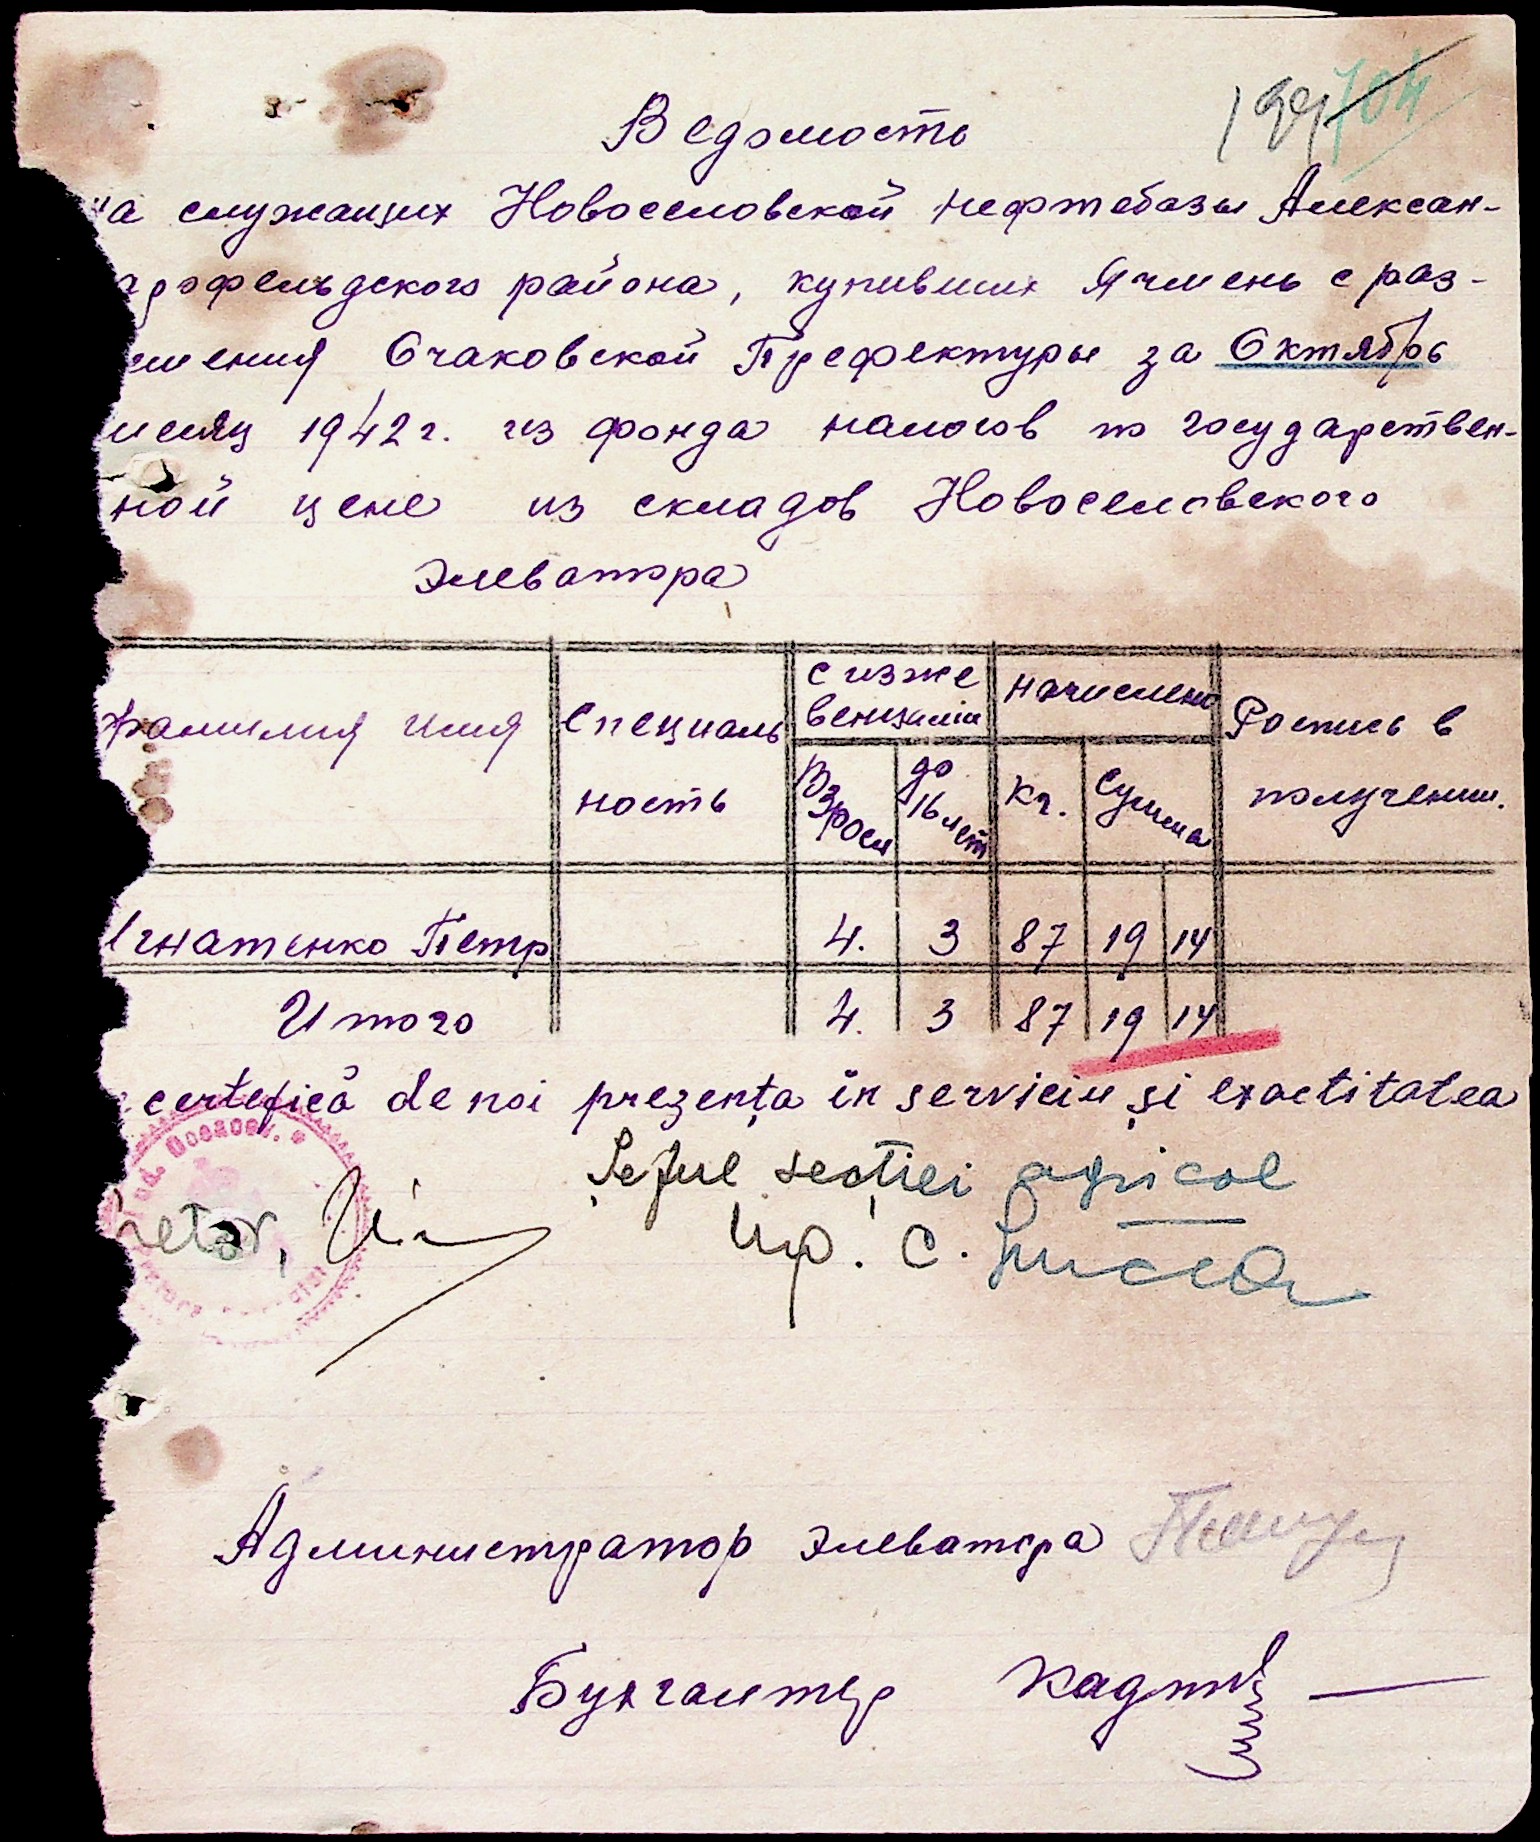 199 704
Ведомость
на служащих Новоселовской нефтебазы Алексан-
дрофельдского района, купивших Ячмень с раз-
шения Очаковской Префектуры за Октябрь
месяц 1942 г. из фонда налогов по государствен-
ной цене из складов Новоселовского
элеватора
Фамилия имя
Специаль
ность
с изже
венцами
Взросл
до 16 лет
начислено
кг.
сумма
Роспись в
получении.
Игнатенко Петр 4. 3 87 19 14
Итого 4. 3 87 19 14
certefică de noi prezența în serviciu și exactitatea
Jud. Oceacov.
retar,
Șeful secției agricole
Ing. C.
Администратор элеватора
Бухгалтер